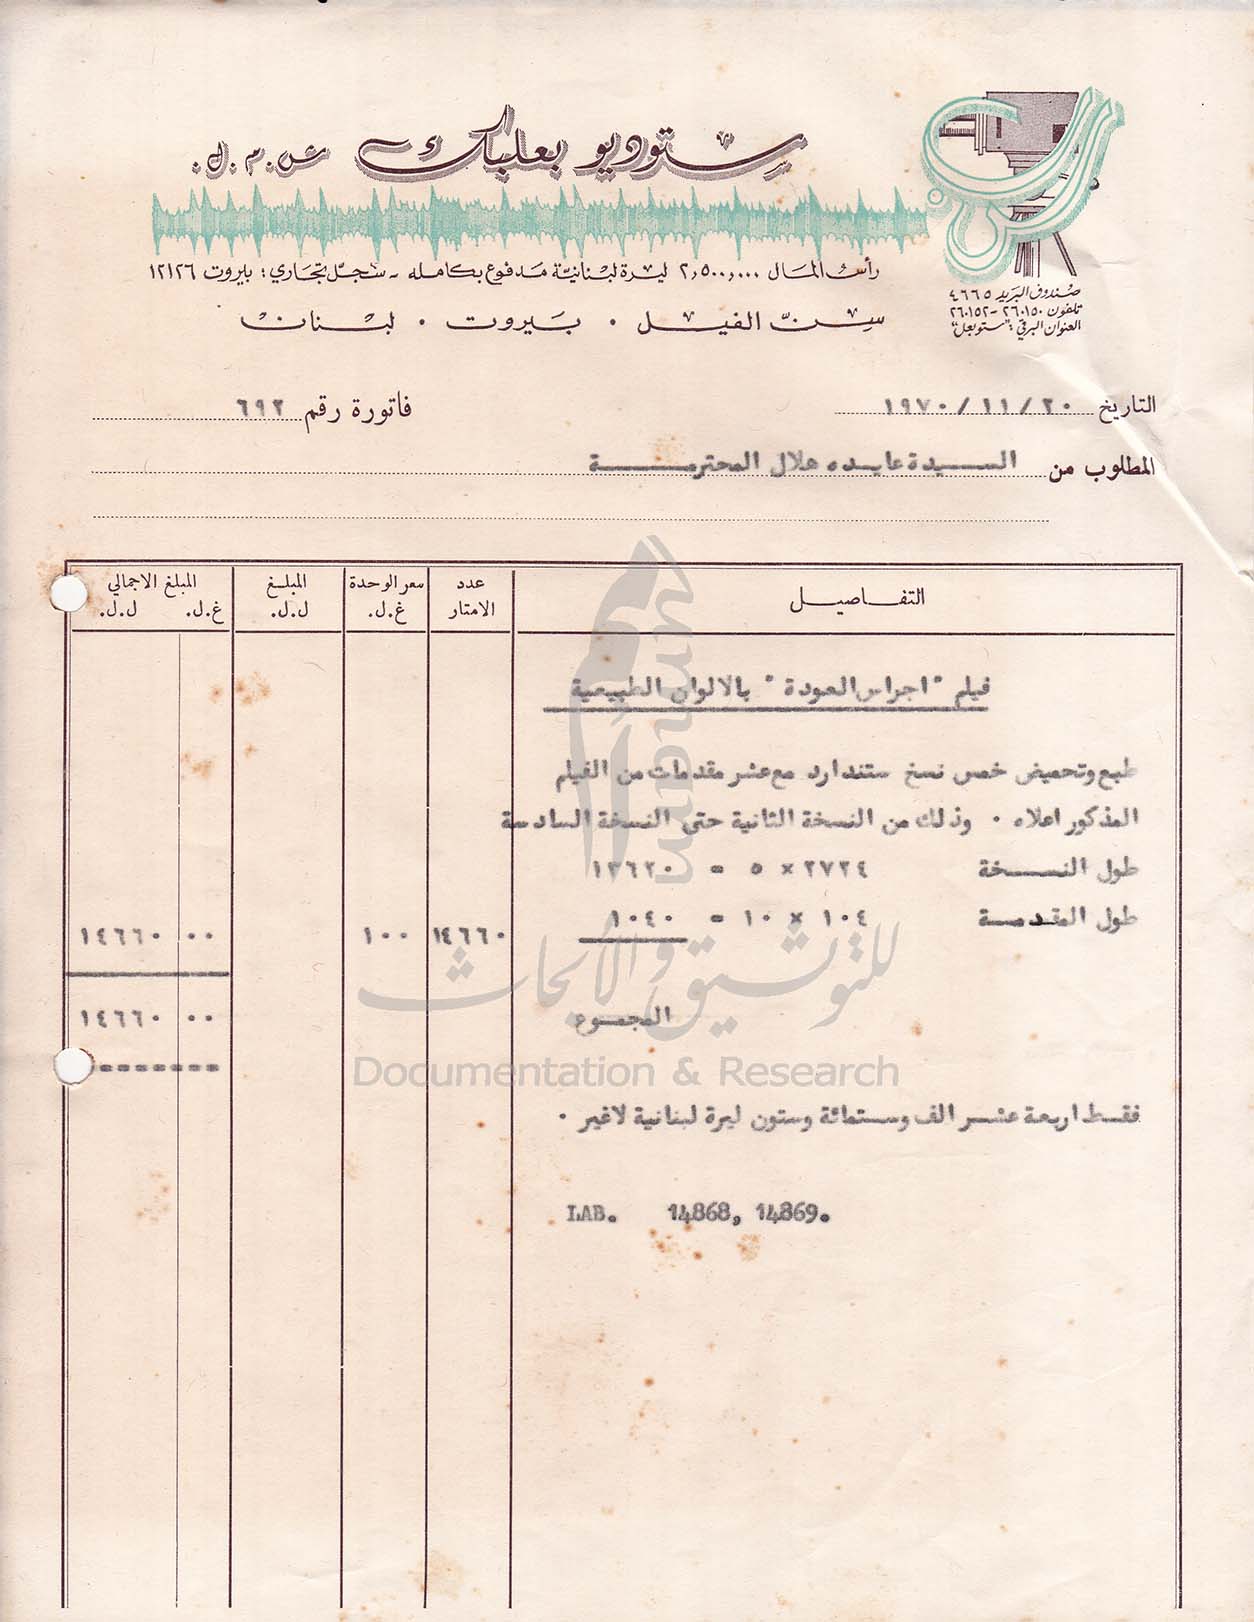 ستوديو بعلبك ش.م.ل.
رأس المال ٢,٥٠٠,٠٠٠ ليرة لبنانية مدفوع بكامله - سجل تجاري: بيروت ١٢١٢٦
سن الفيل . بيروت . لبنان
صندوق البريد ٤٦٦٥
تلفون ٢٦٠١٥٠ - ٢٦٠١٥٢
العنوان البرقي: "ستوبعل"
التاريخ ٢٠ / ١١ / ١٩٧٠
فاتورة رقم ٦٩٢
المطلوب من السيدة عايده هلال المحترمة
التفاصيل
عدد الامتار
سعر الوحدة غ.ل.
المبلغ ل.ل.
المبلغ الاجمالي
غ.ل. ل.ل.
فيلم "اجراس العودة" بالالوان الطبيعية
طبع وتحميض خمس نسخ ستندارد مع عشر مقدمات من الفيلم
المذكور اعلاه . وذلك من النسخة الثانية حتى النسخة السادسة
طول النسخة ٢٧٢٤ × ٥ = ١٣٦٢٠
طول المقدمة ١٠٤ × ١٠ = ١٠٤٠ ١٤٦٦٠ ١٠٠ ٠٠ ١٤٦٦٠
المجموع ٠٠ ١٤٦٦٠
فقط اربعة عشر الف وستمائة وستون ليرة لبنانية لاغير .
LAB. 14868, 14869.
umam
للتوثيق والأبحاث
Documentation & Research